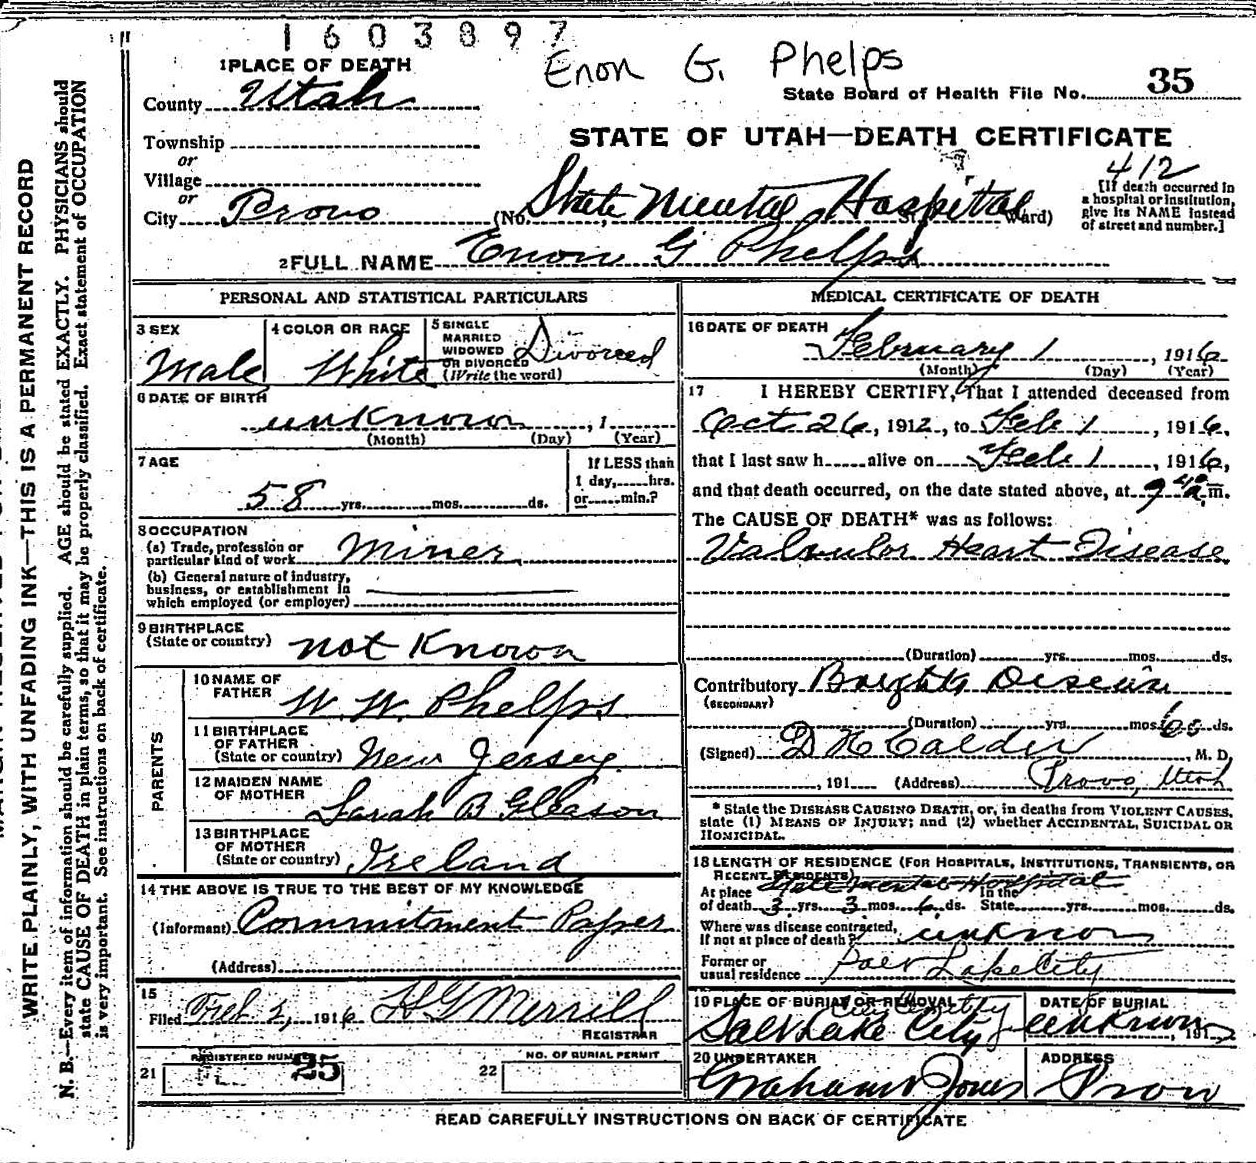 1603897
Enon G. Phelps
1 PLACE OF DEATH
County Utah
State Board of Health File No. 35
STATE OF UTAH—DEATH CERTIFICATE
Township
or
Village
or
City Provo (No. State Mental Hospital St. Ward)
412
[If death occurred in
a hospital or institution,
give its NAME instead
of street and number.]
2 FULL NAME Enon G Phelps
PERSONAL AND STATISTICAL PARTICULARS
3 SEX
Male
4 COLOR OR RACE
White
5 SINGLE
MARRIED
WIDOWED
OR DIVORCED
(Write the word)
Divorced
6 DATE OF BIRTH
unknown, 1
(Month) (Day) (Year)
7 AGE
58 yrs. mos. ds.
If LESS than
1 day, hrs.
or min.?
8 OCCUPATION
(a) Trade, profession or
particular kind of work Miner
(b) General nature of industry,
business, or establishment in
which employed (or employer)
9 BIRTHPLACE
(State or country) not Known
PARENTS
10 NAME OF
FATHER W. W. Phelps
11 BIRTHPLACE
OF FATHER
(State or country) New Jersey
12 MAIDEN NAME
OF MOTHER Sarah B Gleason
13 BIRTHPLACE
OF MOTHER
(State or country) Ireland
14 THE ABOVE IS TRUE TO THE BEST OF MY KNOWLEDGE
(Informant) Commitment Paper
(Address)
15
Filed Feb 2, 1916 H G Merrill
REGISTRAR
21 REGISTERED NUMBER
25
22 NO. OF BURIAL PERMIT
MEDICAL CERTIFICATE OF DEATH
16 DATE OF DEATH
February 1, 1916
(Month) (Day) (Year)
17 I HEREBY CERTIFY, That I attended deceased from
Oct 26, 1912, to Feb 1, 1916,
that I last saw h alive on Feb 1, 1916,
and that death occurred, on the date stated above, at 9 40 a m.
The CAUSE OF DEATH* was as follows:
Valvular Heart Disease
(Duration) yrs. mos. ds.
Contributory Brights Disease
(SECONDARY)
(Duration) yrs. mos. ds.
(Signed) D H Calder, M. D.
, 191 (Address) Provo, Utah
* State the DISEASE CAUSING DEATH, or, in deaths from VIOLENT CAUSES,
state (1) MEANS OF INJURY; and (2) whether ACCIDENTAL, SUICIDAL OR
HOMICIDAL.
18 LENGTH OF RESIDENCE (FOR HOSPITALS, INSTITUTIONS, TRANSIENTS, OR
RECENT RESIDENTS)
State Mental Hospital
At place In the
of death 3 yrs. 3 mos. 6 ds. State yrs. mos. ds.
Where was disease contracted,
If not at place of death? unknown
Former or
usual residence Salt Lake City
19 PLACE OF BURIAL OR REMOVAL
City Cemetery
Salt Lake City
DATE OF BURIAL
unknown, 191
20 UNDERTAKER
Graham Jones
ADDRESS
Provo
READ CAREFULLY INSTRUCTIONS ON BACK OF CERTIFICATE
WRITE PLAINLY, WITH UNFADING INK—THIS IS A PERMANENT RECORD
N. B.—Every item of information should be carefully supplied. AGE should be stated EXACTLY. PHYSICIANS should
state CAUSE OF DEATH in plain terms, so that it may be properly classified. Exact statement of OCCUPATION
is very important. See instructions on back of certificate.